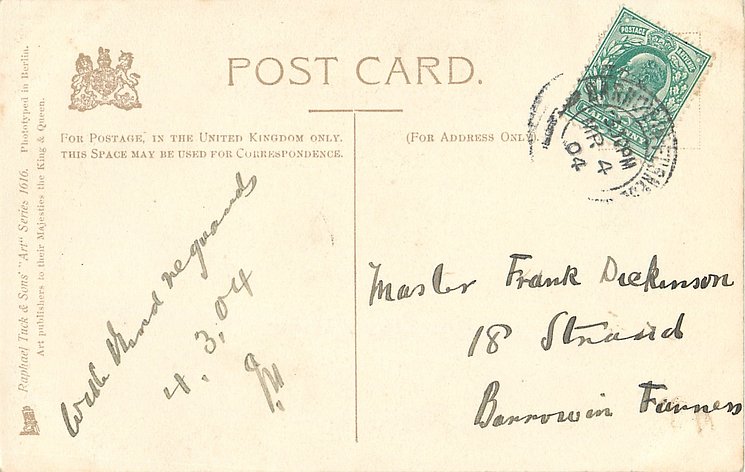 POST CARD.
FOR POSTAGE, IN THE UNITED KINGDOM ONLY,
THIS SPACE MAY BE USED FOR CORRESPONDENCE.
(FOR ADDRESS ONLY)
Raphael Tuck & Sons' "Art" Series 1616. Phototyped in Berlin.
Art publishers to their Majesties the King & Queen.
POSTAGE
MR 4
04
With Kind regards
4.3.04
Master Frank Dickinson
18 Strand
Barrow in Furness